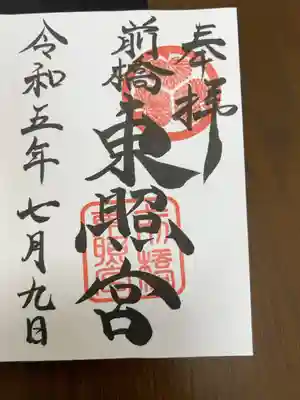 奉拝
前橋
東照宮
令和五年七月九日
前橋
東照宮